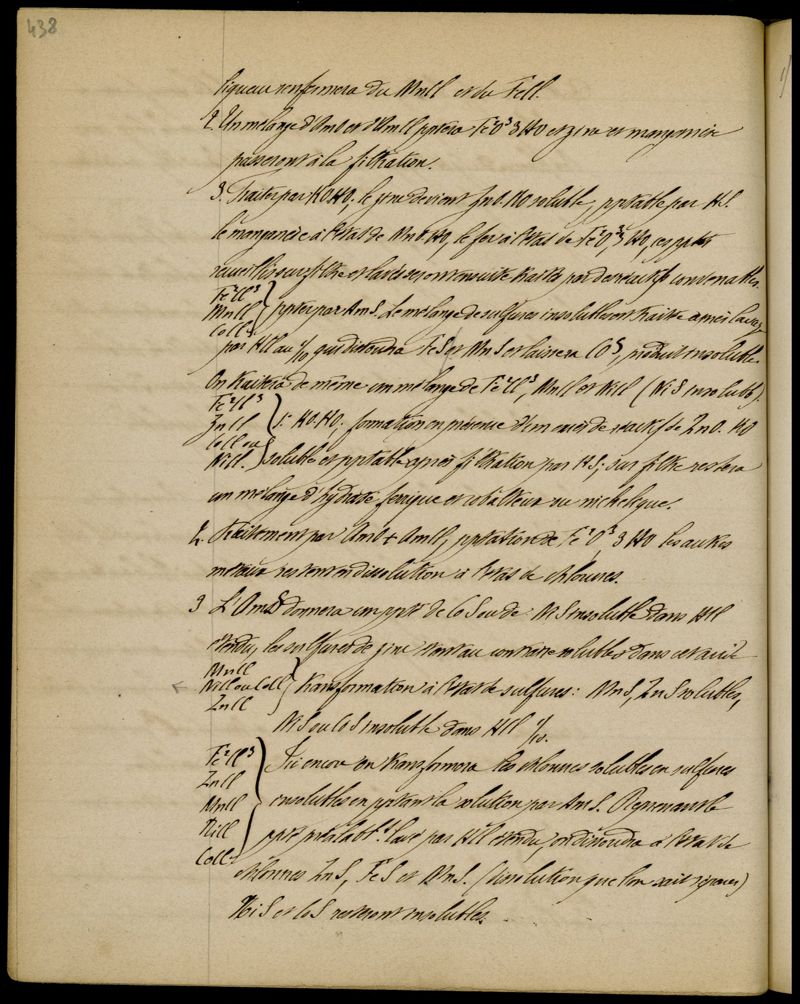 438
liqueur renfermera du MnCl et du FeCl.
2. Un mélange d'AmO et d'AmCl pptera Fe²O³3HO et zinc et manganèse
passeront à la filtration.
3. Traiter par KO.HO, le zinc devient ZnO.HO soluble, pptable par HS.
le manganèse à l'état de MnO.HO, le fer à l'état de Fe²O³,3HO, ces pptés
recueillis sur filtre et lavés seront ensuite traités par des réactifs convenables.
Fe²Cl³
MnCl
CoCl
pptez par AmS. Le mélange de sulfures insolubles est traité après lavage
par HCl au 1/10 qui dissoudra FeS et MnS et laissera CoS, produit insoluble.
On traitera de même un mélange de Fe²Cl³, MnCl et NiCl (NiS insoluble).
Fe²Cl³
ZnCl
CoCl ou
NiCl.
1: KO.HO; formation en présence d'un excès de réactif de ZnO.HO
soluble et pptable après filtration par HS; sur filtre restera
un mélange d'hydrate ferrique et cobalteux ou nickelique.
2. Traitement par AmO + AmCl, pptation de Fe²O³,3HO les autres
métaux restent en dissolution à l'état de chlorures.
3 L'AmS donnera un ppté de CoS ou de NiS insoluble dans HCl
étendu, les sulfures de zinc étant au contraire solubles dans cet acide
MnCl
NiCl ou CoCl
ZnCl
transformation à l'état de sulfures: MnS, ZnS solubles,
NiS ou CoS insoluble dans HCl 1/10.
Fe²Cl³
ZnCl
MnCl
NiCl
CoCl
Ici encore on transformera les chlorures solubles en sulfures
insolubles en pptant la solution par AmS. Reprenant le
ppté préalablt. lavé par HCl étendu, on dissoudra à l'état de
chlorures ZnS, FeS et MnS. (dissolution que l'on sait séparer)
NiS et CoS resteront insolubles.